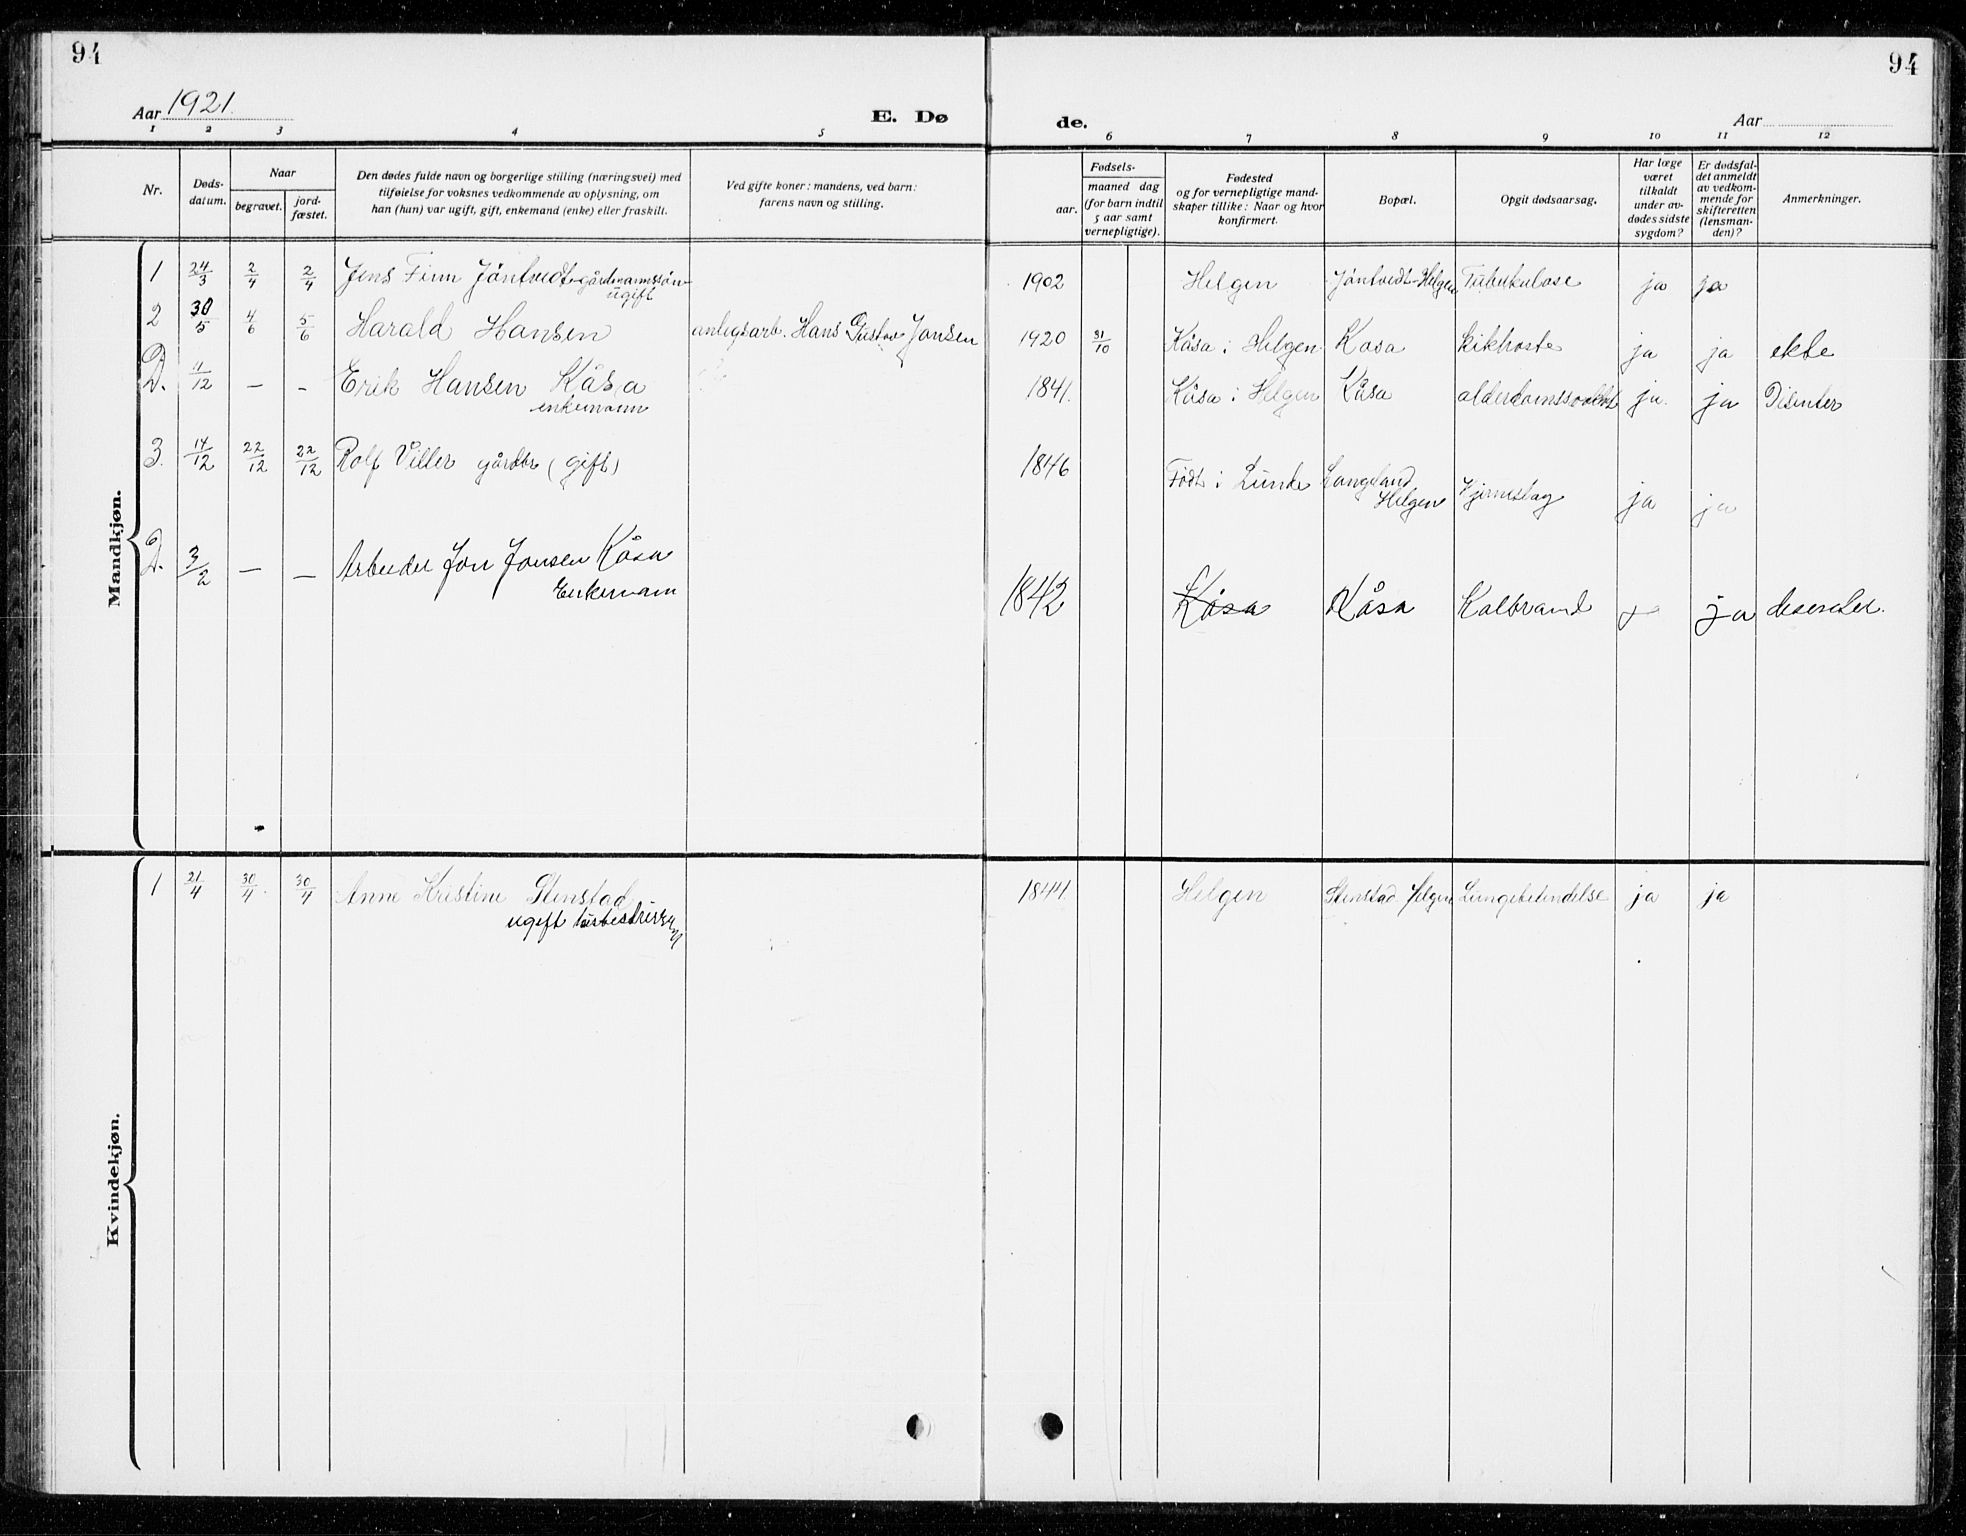 94
94
Aar 1921.
E. Dø
de.
Aar
1 2 3 4 5 6 7 8 9 10 11 12
Nr.
Døds-
datum.
Naar
begravet.
jord-
fæstet.
Den dødes fulde navn og borgerlige stilling (næringsvei) med
tilføielse for voksnes vedkommende av oplysning, om
han (hun) var ugift, gift, enkemand (enke) eller fraskilt.
Ved gifte koner: mandens, ved barn:
farens navn og stilling.
aar.
Fødsels-
maaned dag
(for barn indtil
5 aar samt
vernepligtige).
Fødested
og for vernepligtige mand-
skaper tillike: Naar og hvor
konfirmert.
Bopæl.
Opgit dødsaarsag.
Har læge
været
tilkaldt
under av-
dødes sidste
sygdom?
Er dødsfal-
det anmeldt
av vedkom-
mende for
skifteretten
(lensman-
den)?
Anmerkninger.
Mandkjøn.
1 24/3 2/4 2/4 Jens Finn Jöntvedt gårdmannssön 1902 Helgen Jöntvedt-Helgen Tuberkulose ja ja
ugift
2 30/5 4/6 5/6 Harald Hansen anlegsarb. Hans Gustav Jansen 1920 31/10 Kåsa i Helgen Kasa kikhoste ja ja ekte
D. 11/12 – – Erik Hansen Kåsa 1841. Kåsa i Helgen Kåsa ja. ja Disenter
enkemann
3. 14/12 22/12 22/12 Rolf Viller gårdbr (gift) 1846 Født i Lunde Langeland
Helgen ja ja
D. 3/2 – – Arbeider Jon Jonsen Kåsa 1842 Kåsa Kåsa Kolbrand ja
Enkemann
Kvindekjøn.
1 21/4 30/4 30/4 Anne Kristine Stenstad 1844. Helgen Stenstad Helgen Lungebetendelse ja ja
ugift